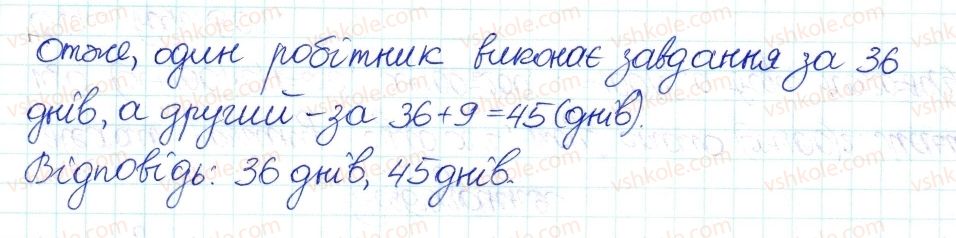 Отже, один робітник виконає завдання за 36
днів, а другий – за 36 + 9 = 45 (днів).
Відповідь: 36 днів, 45 днів.